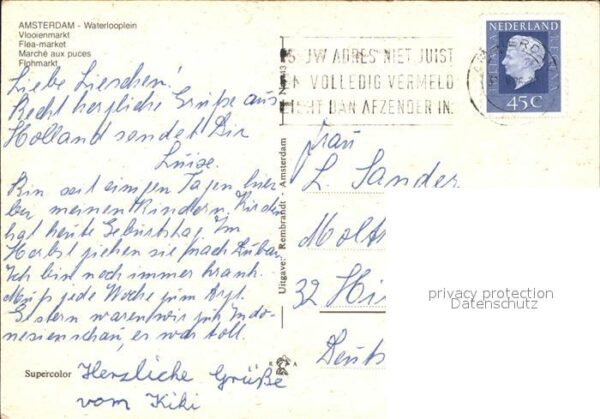 AMSTERDAM - Waterlooplein
Vlooienmarkt
Flea-market
Marché aux puces
Flohmarkt
NEDERLAND
45 C
S UW ADRES NIET JUIST
EN VOLLEDIG VERMELD
LICHT DAN AFZENDER IN.
Liebe Lieschen!
Recht herzliche Grüße aus
Holland sendet Dir
Luise.
Bin seit einigen Tagen hier
bei meinen Kindern,
hat heute Geburtstag. Im
Herbst ziehen sie nach
Ich bin noch immer krank.
Muß jede Woche zum Arzt.
Gestern waren wir zur Indo-
nesienschau, es war toll.
Herzliche Grüße
vom Kiki
Supercolor
Uitgave: Rembrandt - Amsterdam
Frau
L. Sander
Molt
32 Hi
Deuts
privacy protection
Datenschutz